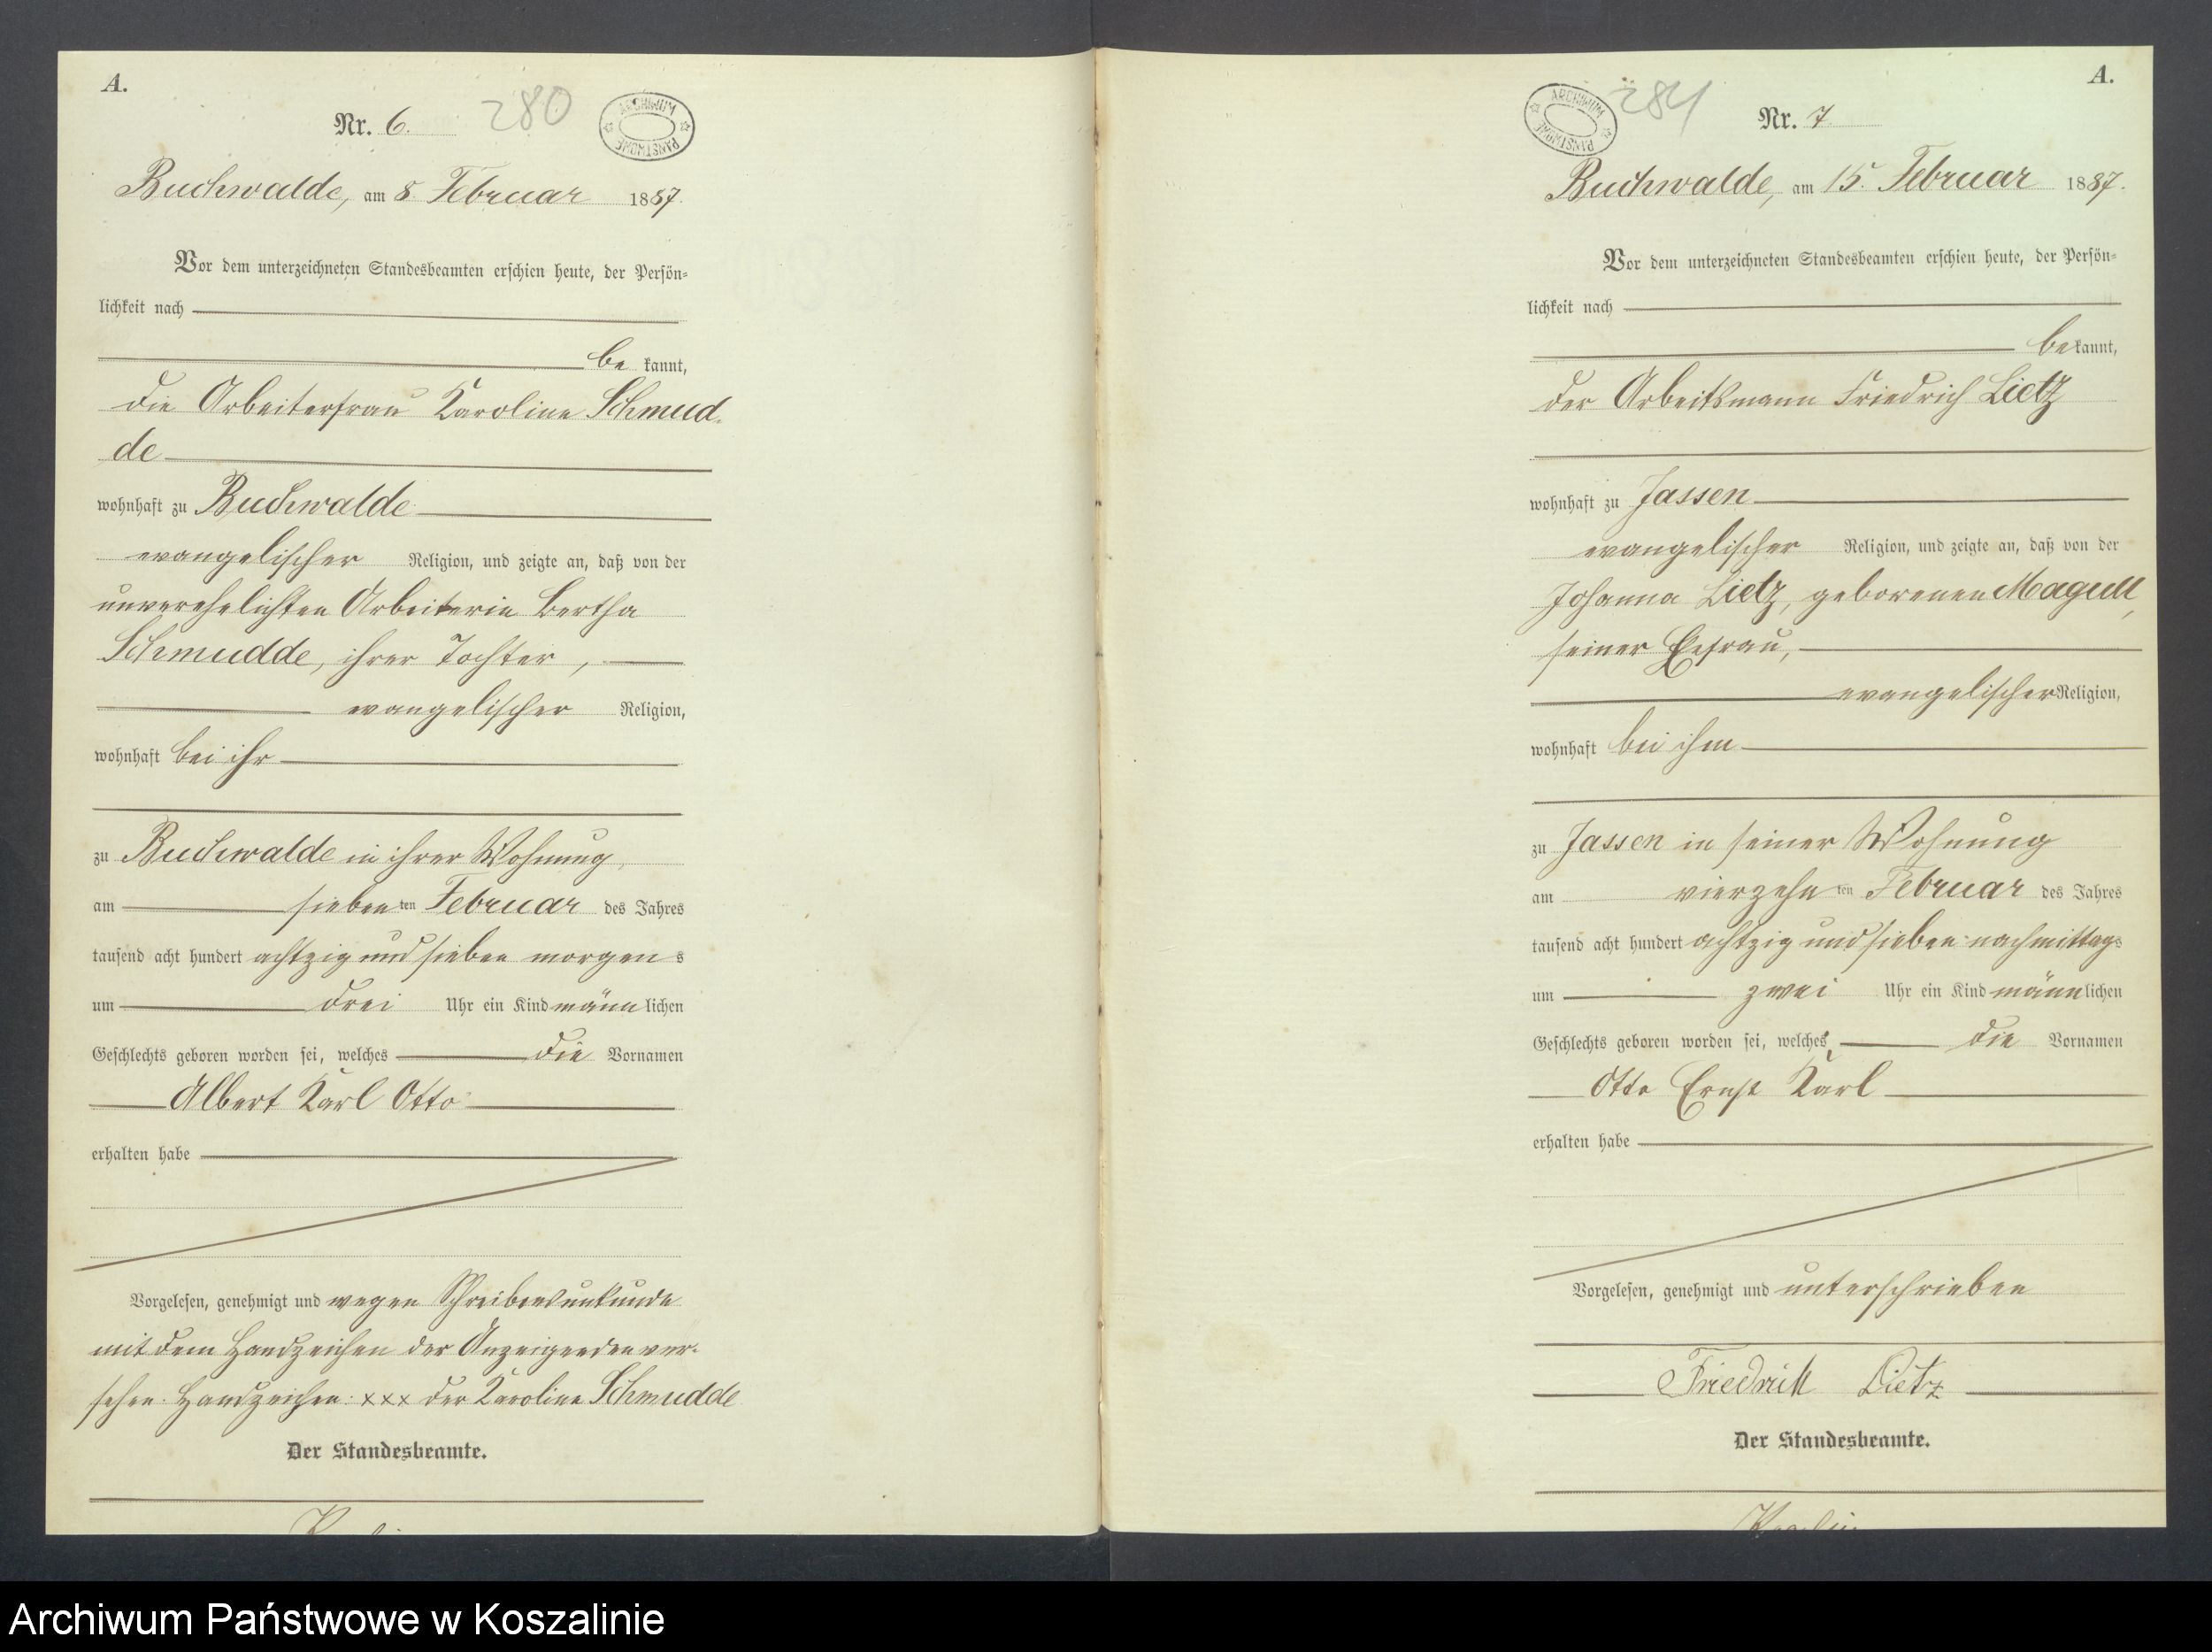 A.
Nr. 6. 280
ARCHIWUM PAŃSTWOWE
Buchwalde, am 8 Februar 1887.
Vor dem unterzeichneten Standesbeamten erschien heute, der Persön-
lichkeit nach
be kannt,
die Arbeiterfrau Karoline Schmud-
de
wohnhaft zu Buchwalde
evangelischer Religion, und zeigte an, daß von der
unverehelichten Arbeiterin Bertha
Schmudde, ihrer Tochter,
evangelischer Religion,
wohnhaft bei ihr
zu Buchwalde in ihrer Wohnung,
am sieben ten Februar des Jahres
tausend acht hundert achtzig und sieben morgens
um drei Uhr ein Kind männlichen
Geschlechts geboren worden sei, welches die Vornamen
Albert Karl Otto
erhalten habe
Vorgelesen, genehmigt und wegen Schreibensunkunde
mit dem Handzeichen der Anzeigenden ver-
sehen. Handzeichen: xxx der Karoline Schmudde
Der Standesbeamte.
A.
ARCHIWUM PAŃSTWOWE
281 Nr. 7
Buchwalde, am 15. Februar 1887.
Vor dem unterzeichneten Standesbeamten erschien heute, der Persön-
lichkeit nach
bekannt,
der Arbeitsmann Friedrich Lietz
wohnhaft zu Jassen
evangelischer Religion, und zeigte an, daß von der
Johanna Lietz, geborenen Magull,
seiner Ehefrau,
evangelischer Religion,
wohnhaft bei ihm
zu Jassen in seiner Wohnung
am vierzehn ten Februar des Jahres
tausend acht hundert achtzig und sieben nachmittags
um zwei Uhr ein Kind männlichen
Geschlechts geboren worden sei, welches die Vornamen
Otto Ernst Karl
erhalten habe
Vorgelesen, genehmigt und unterschrieben
Friedrich Lietz
Der Standesbeamte.
Archiwum Państwowe w Koszalinie